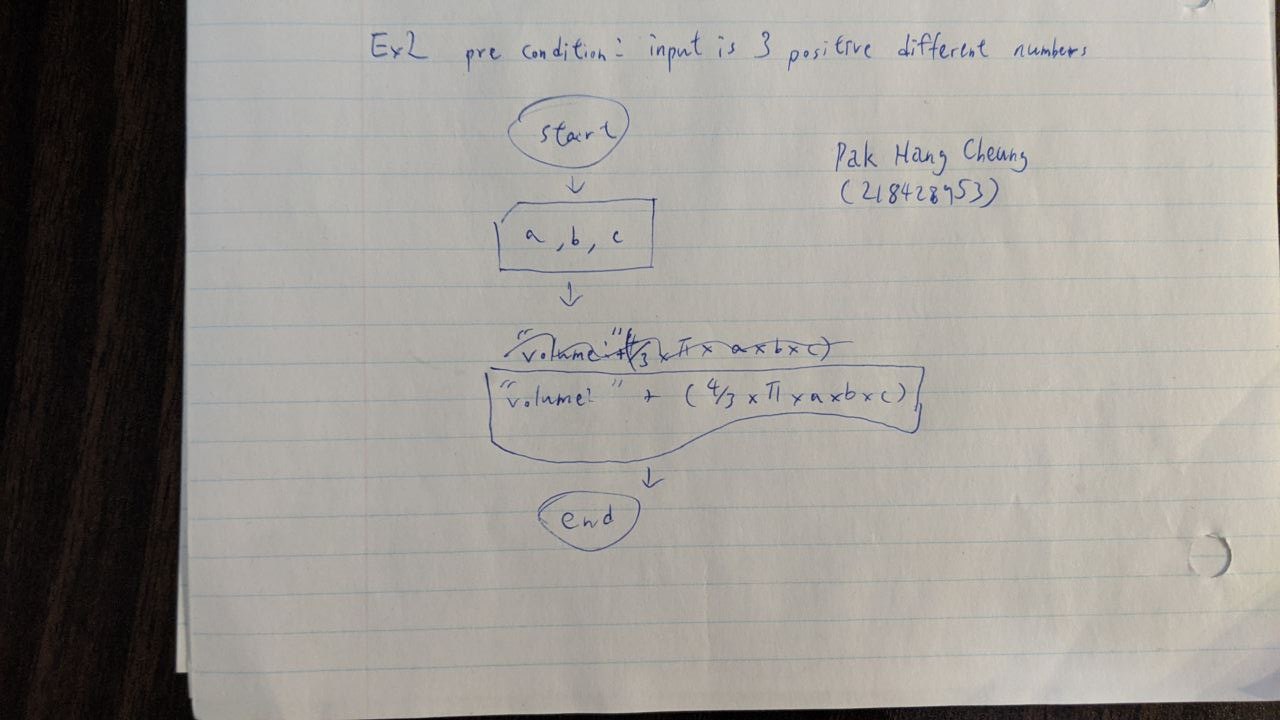 Ex2 pre condition: input is 3 positive different numbers
start
Pak Hang Cheung
a, b, c
"volume: " + (4/3 x π x a x b x c)
"volume: " + (4/3 x π x a x b x c)
end